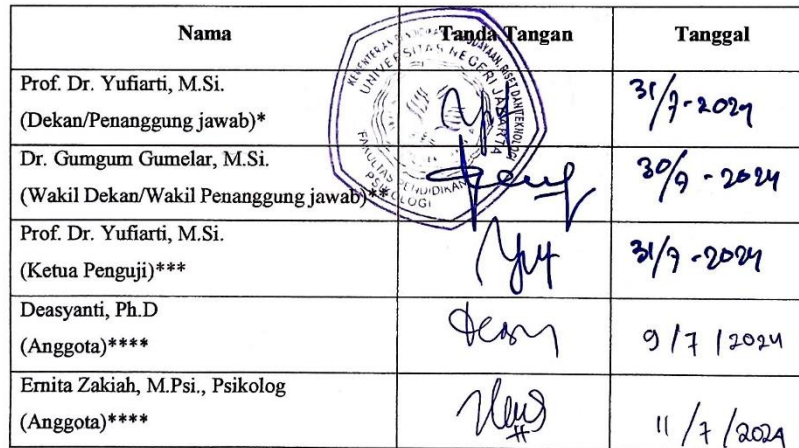 Nama
Tanda Tangan
Tanggal
Prof. Dr. Yufiarti, M.Si.
(Dekan/Penanggung jawab)*
31/7-2024
Dr. Gumgum Gumelar, M.Si.
(Wakil Dekan/Wakil Penanggung jawab)**
30/7 - 2024
Prof. Dr. Yufiarti, M.Si.
(Ketua Penguji)***
31/7-2024
Deasyanti, Ph.D
(Anggota)****
9/7/2024
Ernita Zakiah, M.Psi., Psikolog
(Anggota)****
11/7/2024
UNIVERSITAS NEGERI JAKARTA
FAKULTAS PENDIDIKAN
PSIKOLOGI